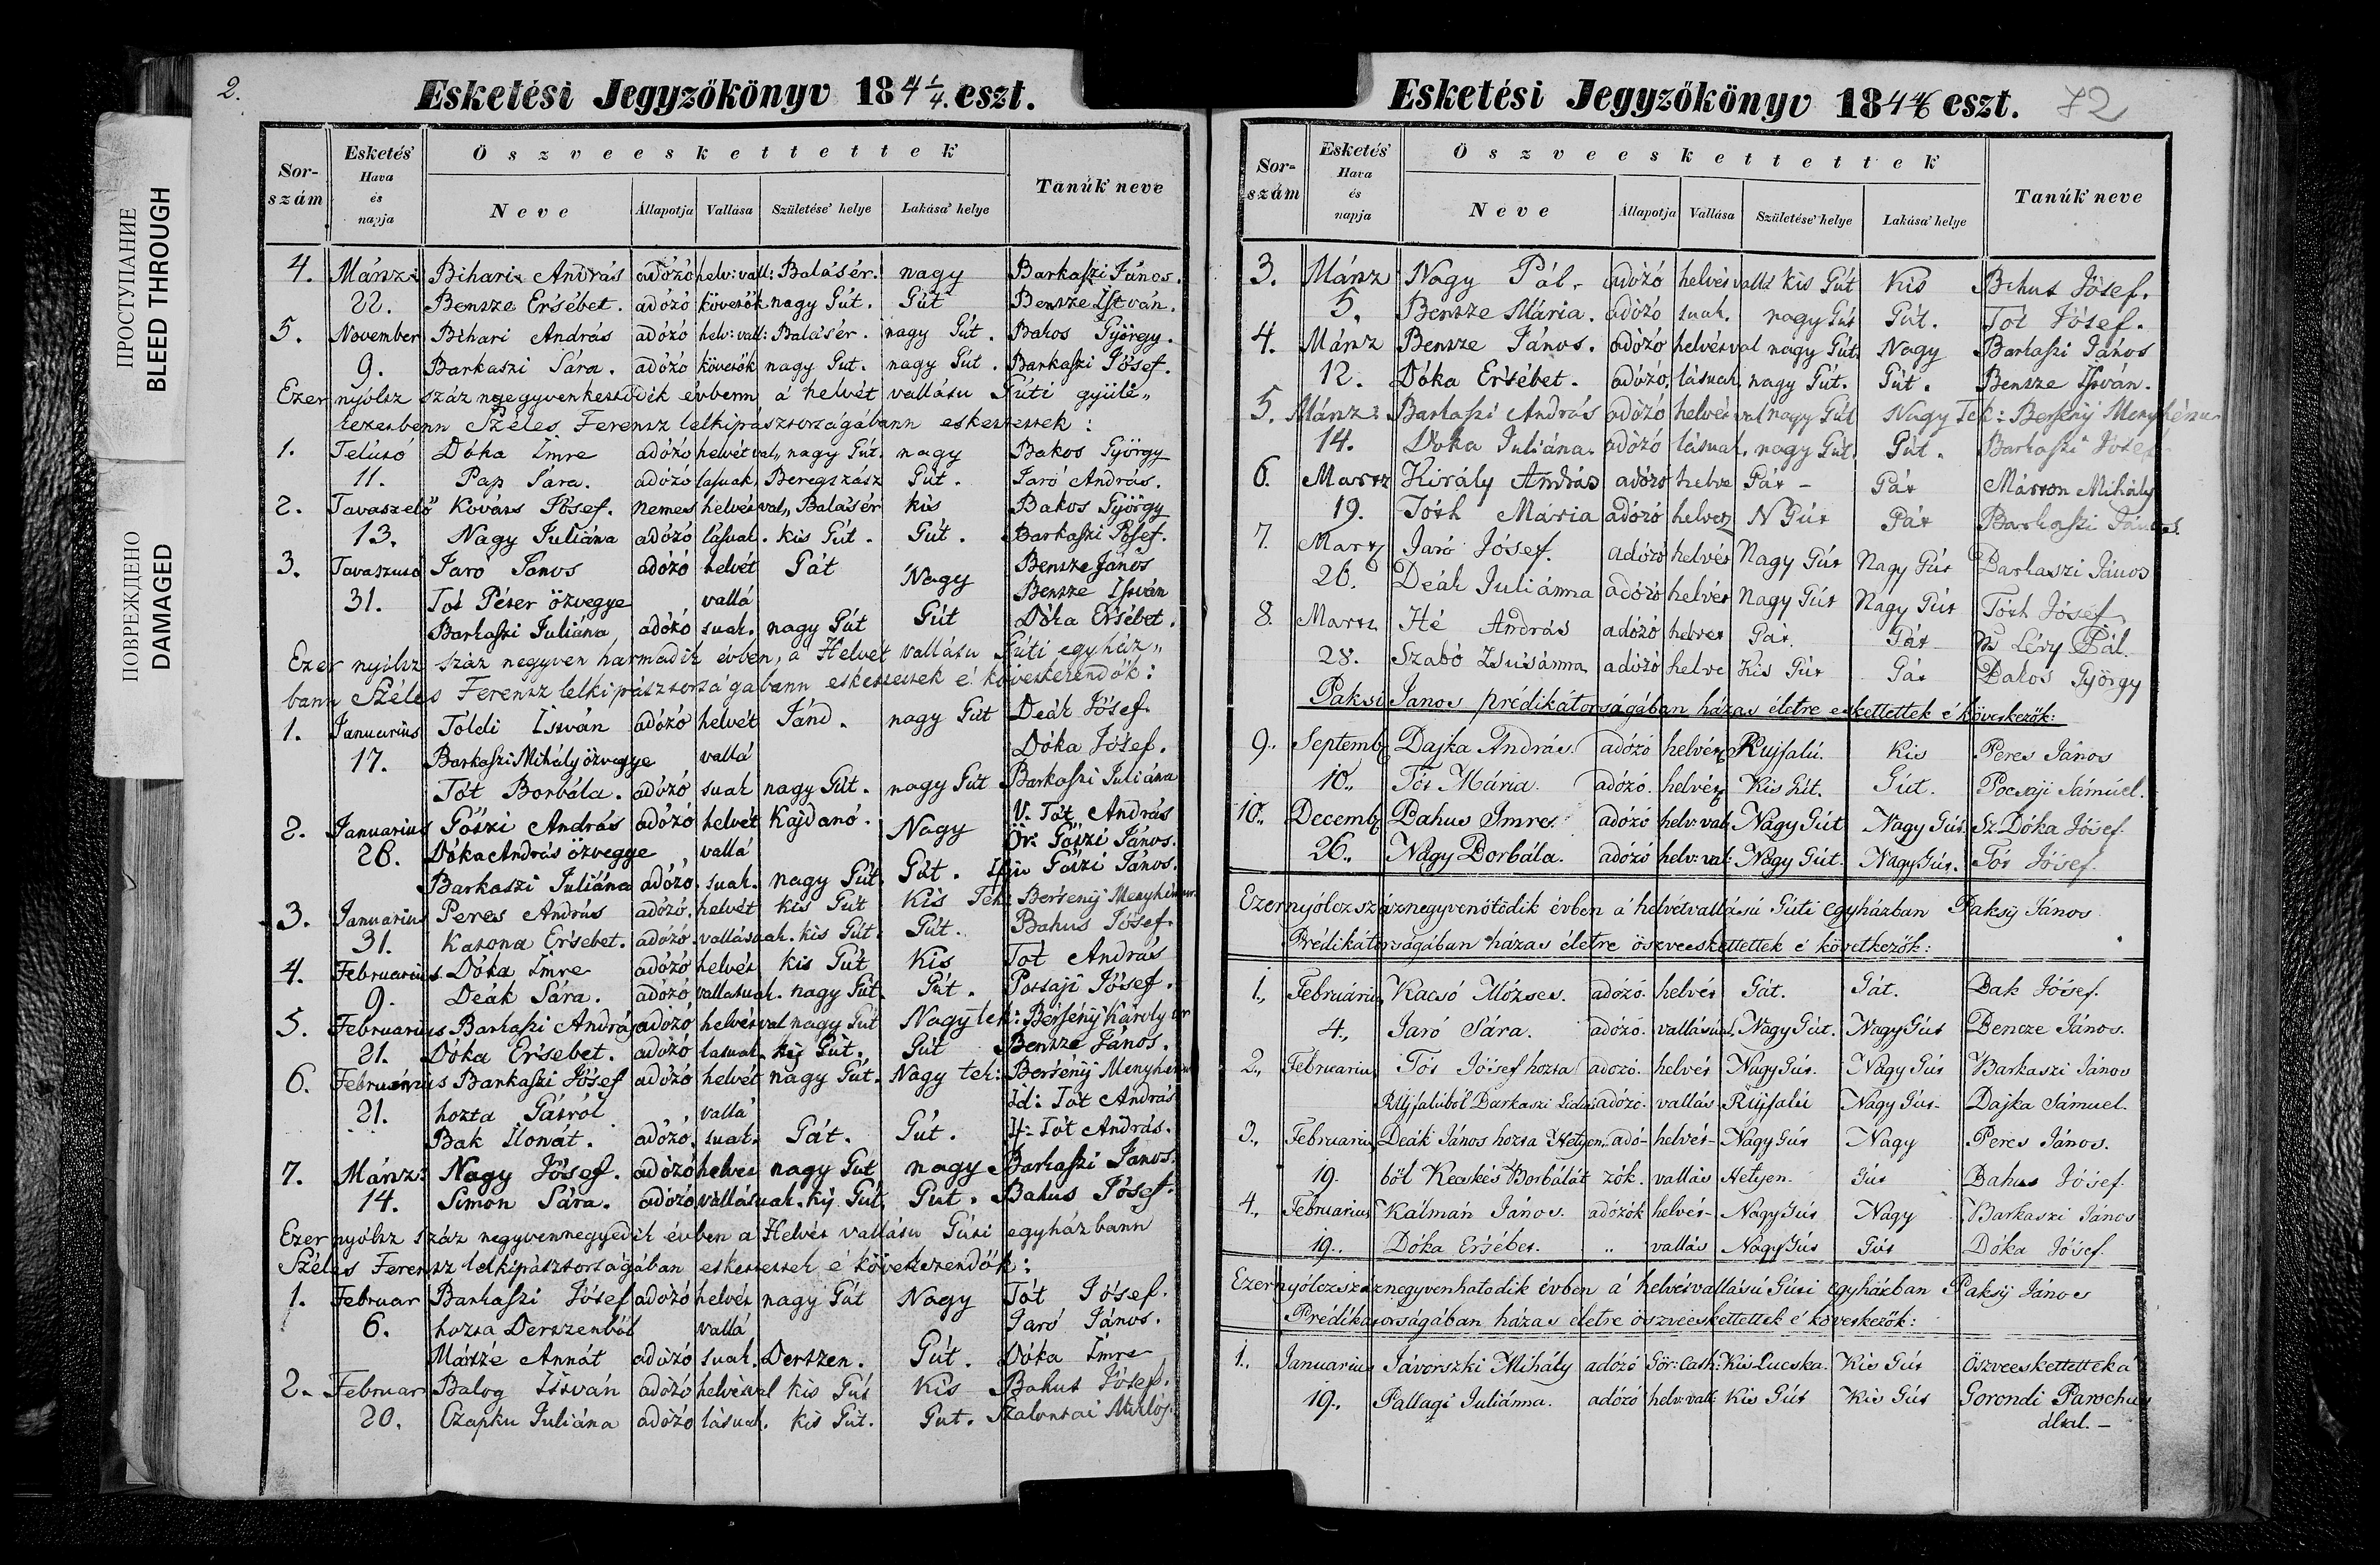 ПРОСТУПАНИЕ
BLEED THROUGH
ПОВРЕЖДЕНО
DAMAGED
2.
Esketési Jegyzőkönyv 184 1/4. eszt.
Sor-szám Esketés' Hava és napja Öszveeskettettek Tanúk neve
Neve Állapotja Vallása Születése' helye Lakása' helye
4. Bihari András adózó helv: vall: Balásér. nagy Barkaszi János.
22. Bensze Ersébet. adózó követők nagy Gút. Gút Bensze István.
5. November Bihari András adózó helv: vall: Balásér. nagy Gút. Bakos György.
9. Barkaszi Sára. adózó követők nagy Gut. nagy Gút. Barkaszi Jósef.
Ezer nyólsz száz évbenn á helvét vallásu Gúti gyülé„
Széles Ferensz lelkipásztorságábann eskettettek:
1. Télutó Dóka Imre adózó helvét val„ nagy Gút. nagy Bakos György
11. Pap Sára. adózó lásuak, Beregszász Gút. Jaró András.
2. Tavaszelő Kováts Jósef. nemes helvét val„ Balásér kis Bakos György
13. Nagy Juliána adózó lásuak. kis Gút. Gút. Barkaszi Jósef.
3. Tavaszutó Jaró János adózó helvét Gát Nagy Bensze János
31. Tót Péter özvegye vallá Bensze István
Barkaszi Juliána, adózó suak. nagy Gút Gút Dóka Ersébet.
Ezer nyólsz száz negyven harmadik évben, a Helvét vallásu Gúti egyház„
bann Széles Ferensz lelkipásztorságabann eskettettek é követkerendők:
1. Januarius Tóldi István adózó helvét Jánd. nagy Gút Deák Jósef.
17. Barkaszi Mihály özvegye vallá Dóka Jósef.
Tót Borbála. adózó suak nagy Gút. nagy Gút Barkaszi Juliána
2. Januarius Gószi András adózó helvét Kajdanó. Nagy V. Tót András
26. Dóka András özvegye vallá Ör: Gószi János.
Barkaszi Juliána adózó. suak. nagy Gút. Gút. Ifju Gószi János.
3. Januarius Peres András adózó. helvét kis Gút Kis Tek: Bersenÿ Menyhért
31. Katona Ersebet. adózó. vallásuak. kis Gút. Gút. Bahus Jósef.
4. Februarius Dóka Imre adózó helvét kis Gút Kis Tot András
9. Deák Sára. adózó vallasuak. nagy Gút. Gút. Jósef.
5. Februarius Barkaszi András adózó helvét val nagy Gút Nagy tek: Bersényi Károly úr
21. Dóka Ersebet. adózó lasuak. kis Gút. Gút Bensze János.
6. Februarius Barkaszi Jósef adózó helvét nagy Gút. Nagy tek: Bersényi Menyhért
21. hozta Gátról vallá id: Tót András
Bak Ilonát. adózó. suak. Gát. Gút. If: Tót András.
7. Mártz: Nagy Jósef. adózó helvet nagy Gút nagy Barkaszi János.
14. Simon Sára. adózó vallásuak. kis Gút. Gut. Bahus Jósef.
Ezer nyólsz száz negyvennegyedik évben a Helvét vallásu Gúti egyházbann
Széles Ferensz lelkipásztorságában eskettettek é következendők:
1. Februar Barkaszi Jósef adózó helvét nagy Gút Nagy Tót Jósef.
6. hozta Dertzenből vallá Jaró János.
Annát adózó suak. Dertzen. Gút. Dóka Imre
2. Februar Balog István adózó helvétval kis Gút Kis Bahut Jósef.
20. Czapku Juliána adózó lásuak. kis Gút. Gut. Szalontai Miklós.
Esketési Jegyzőkönyv 184 4/6 eszt. 72
Sor-szám Esketés' Hava és napja Öszveeskettettek Tanúk neve
Neve Állapotja Vallása Születése' helye Lakása' helye
3. Mártz Nagy Pál. adózó helvét vallá kis Gút Kis Bihut Jósef.
5. Bensze Mária. adózó suak. nagy Gút Gút. Tót Jósef.
4. Mártz Bensze János. adózó helvét val nagy Gút. Nagy Barkaszi János
12. Dóka Ersébet. adózó, lásuak, nagy Gút. Gút. Bensze István.
5. Mártz: Barkaszi András adózó helvét val nagy Gút Nagy Tek: Bersenÿ Menyhért
14. Dóka Juliána. adózó lásuak, nagy Gút. Gút. Barkaszi Jósef
6. Martz Király András adózó helve Gát - Gát Márton Mihály
19. Tóth Mária adózó helvez N Gút Gát Barkaszi János.
7. Martz Jaró Jósef. adózó helvét Nagy Gút Nagy Gút Barkaszi János
26. Deák Juliánna adózó helvét Nagy Gút Nagy Gút Tóth Jósef
8. Martz Hé András adózó helvét Gát Gát Lévy Pál.
28. Szabó Zsúsánna adózó helve Kis Gút Gát Bakos György
Paksi János prédikátorságában házas életre eskettettek é következők:
9.. Septemb Dajka András. adózó helvét Rujfalú. Kis Peres János
10.. Tót Mária. adózó. helvét Kis Gút. Gút. Pocsaji Sámúel.
10.. Decemb Bahus Imre. adózó helv: val. Nagy Gút Nagy Gút. Sz. Dóka Jósef.
26.. Nagy Borbála. adózó helv: val: Nagy Gút. Nagy Gút. Tót Jósef.
Ezernyólczszáznegyvenötödik évben á helvétvallású Gúti egyházban Paksÿ János
Prédikátorságában házas életre öszveeskettettek é következők:
1., Februárius Kacsó Mózses. adózó. helvét Gát. Gát. Bak Jósef.
4., Jaró Sára. adózó. vallású. Nagy Gút. Nagy Gút Bencze János.
2., Februarius Tót Jósef hozta adozó. helvét Nagy Gút. Nagy Gút Barkaszi János
RUjfalúból Barkaszi adózó. vallás Rújfalú Nagy Gút- Dajka Sámuel.
3., Februarius Deák János hozta Hetyen„ adó- helvét- Nagy Gút Nagy Peres János.
19. ből Kecskés Borbálát zók. vallás Hetyen. Gút Bahus Jósef.
4., Februarius Kálmán János. adózók helvét- Nagy Gút Nagy Barkaszi János
19.. Dóka Ersébet. „ vallás Nagy Gút Gút Dóka Jósef.
Ezernyólczszáznegyvenhatodik évben á helvétvallású Gúti egyházban Paksÿ János
Prédikátorságában házas életre öszveeskettettek é következők:
1.. Januarius Jávorszki Mihály adózó Gör: Cath: Kis Lucska. Kis Gút öszveeskettettek á
19.. Pallagi Juliánna. adózó helv: vall: Kis Gút Kis Gút Gorondi Parochus
által. -